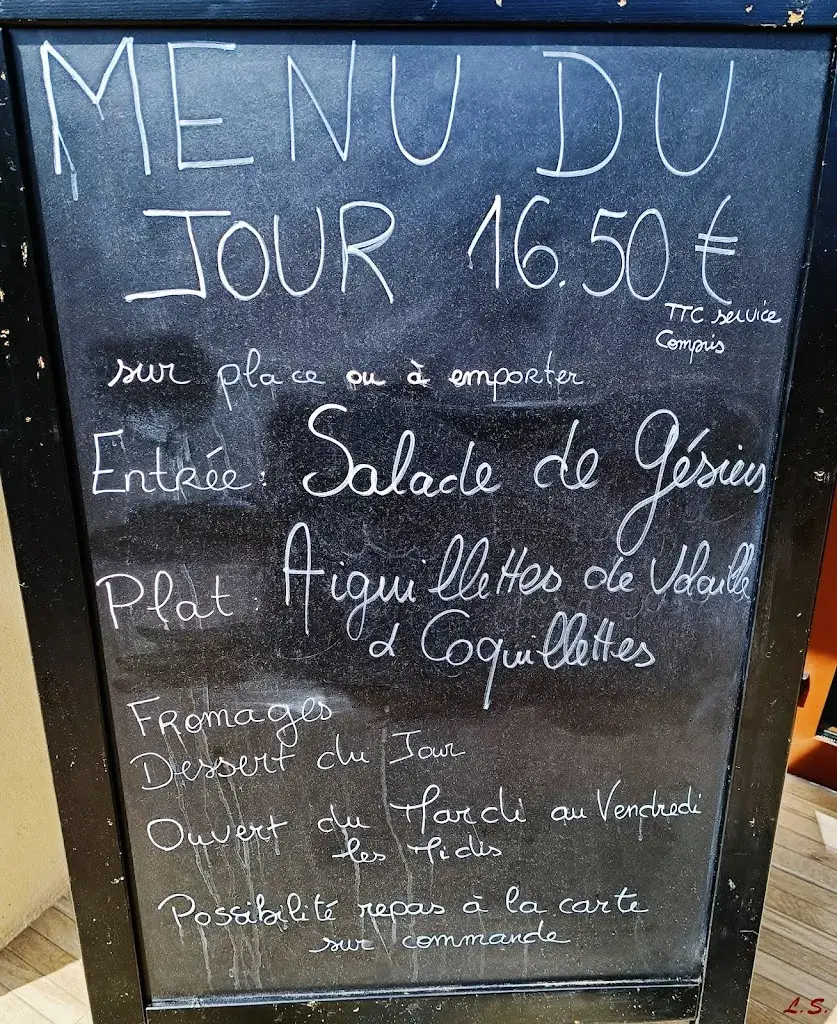 MENU DU
JOUR 16.50 €
TTC service
Compris
sur place ou à emporter
Entrée: Salade de Gésiers
Plat: Aiguillettes de Volaille
& Coquillettes
Fromages
Dessert du Jour
Ouvert du Mardi au Vendredi
les Midis
Possibilité repas à la carte
sur commande
L.S.